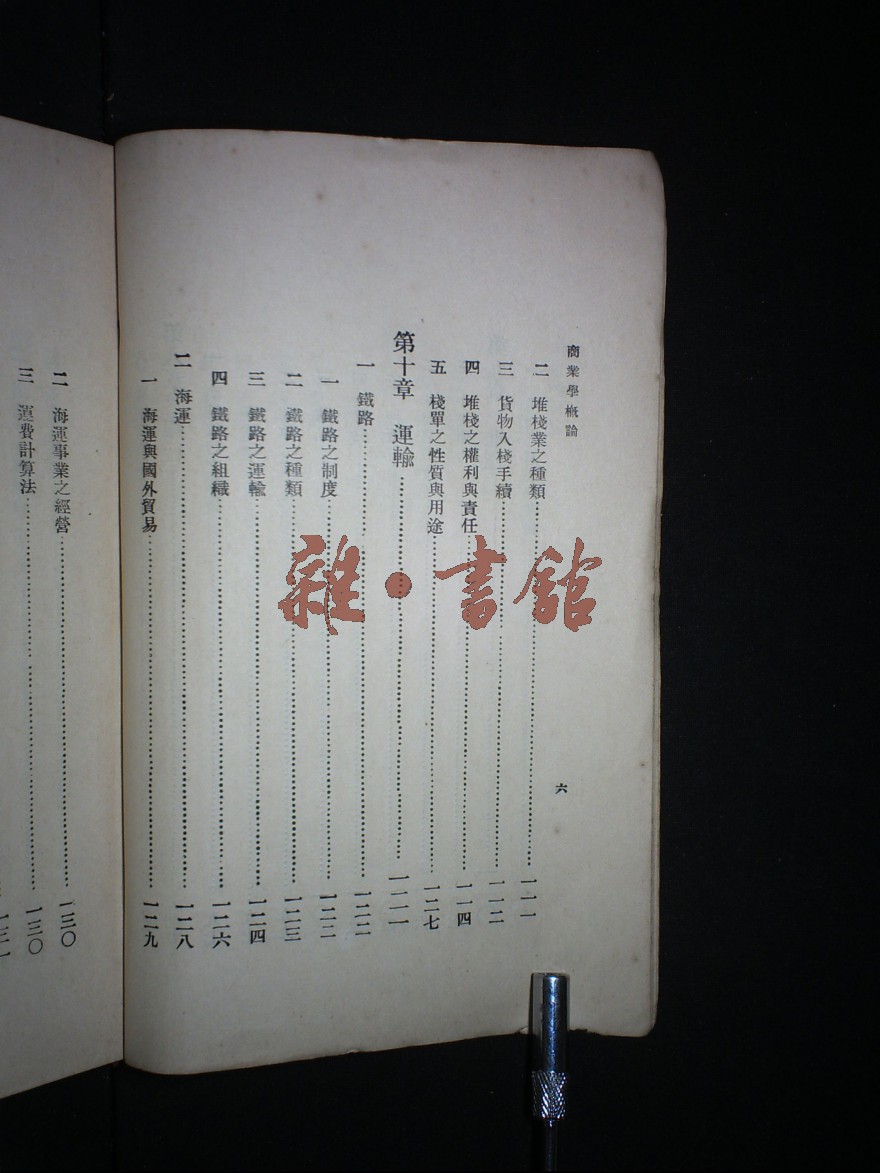 商業學概論
六
二 堆棧業之種類……一一一
三 貨物入棧手續……一一二
四 堆棧之權利與責任……一一四
五 棧單之性質與用途……一二七
第十章 運輸……一二一
一 鐵路……一二二
一 鐵路之制度……一二二
二 鐵路之種類……一二三
三 鐵路之運輸……一二四
四 鐵路之組織……一二六
二 海運……一二八
一 海運與國外貿易……一二九
二 海運事業之經營……一三〇
三 運費計算法……一三〇
雜·書館